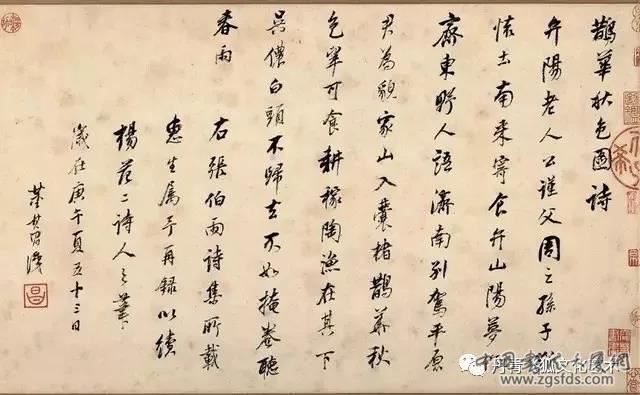 鵲華秋色圖詩
弁陽老人公謹父周之孫子猶
懷土南來寄食弁山陽夢作
齊東野人語濟南別駕平原
君為貌家山入囊楮鵲華秋
色翠可食耕稼陶漁在其下
吳儂白頭不歸去不如掩卷聽
春雨
右張伯雨詩集所載
惠生屬予再錄以續
楊范二詩人之筆
歲在庚午夏五十三日
董其昌識
昌
www.zgsfds.com